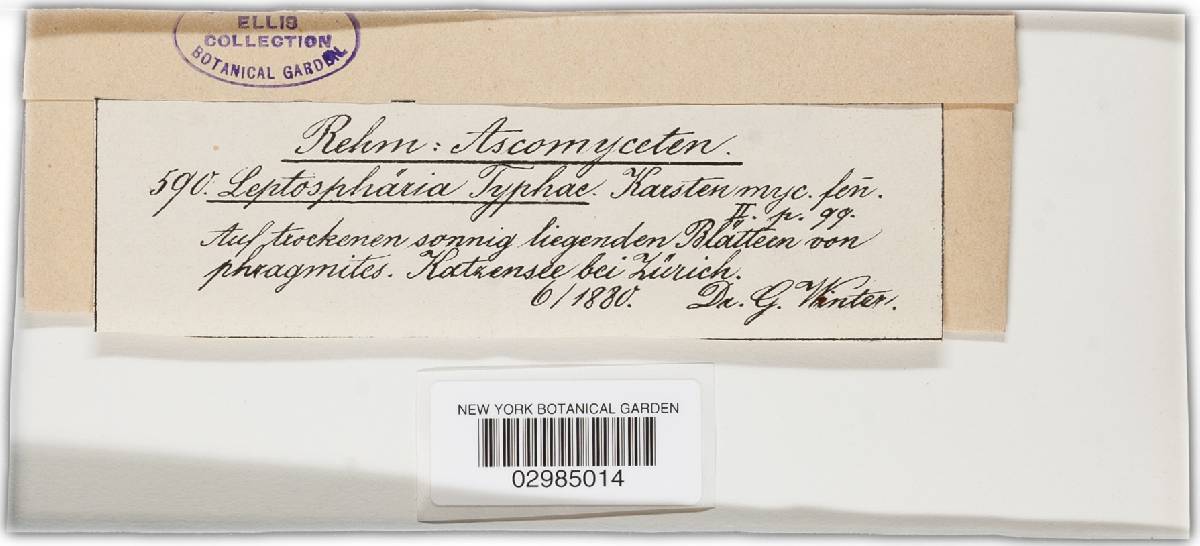 ELLIS
COLLECTION
BOTANICAL GARDEN
Rehm: Ascomyceten.
590. Leptosphäria Typhae. Karsten myc. fen̄.
II. p. 99.
Auf trockenen sonnig liegenden Blättern von
phragmites. Katzensee bei Zürich.
6/1880. Dr. G. Winter.
NEW YORK BOTANICAL GARDEN
02985014